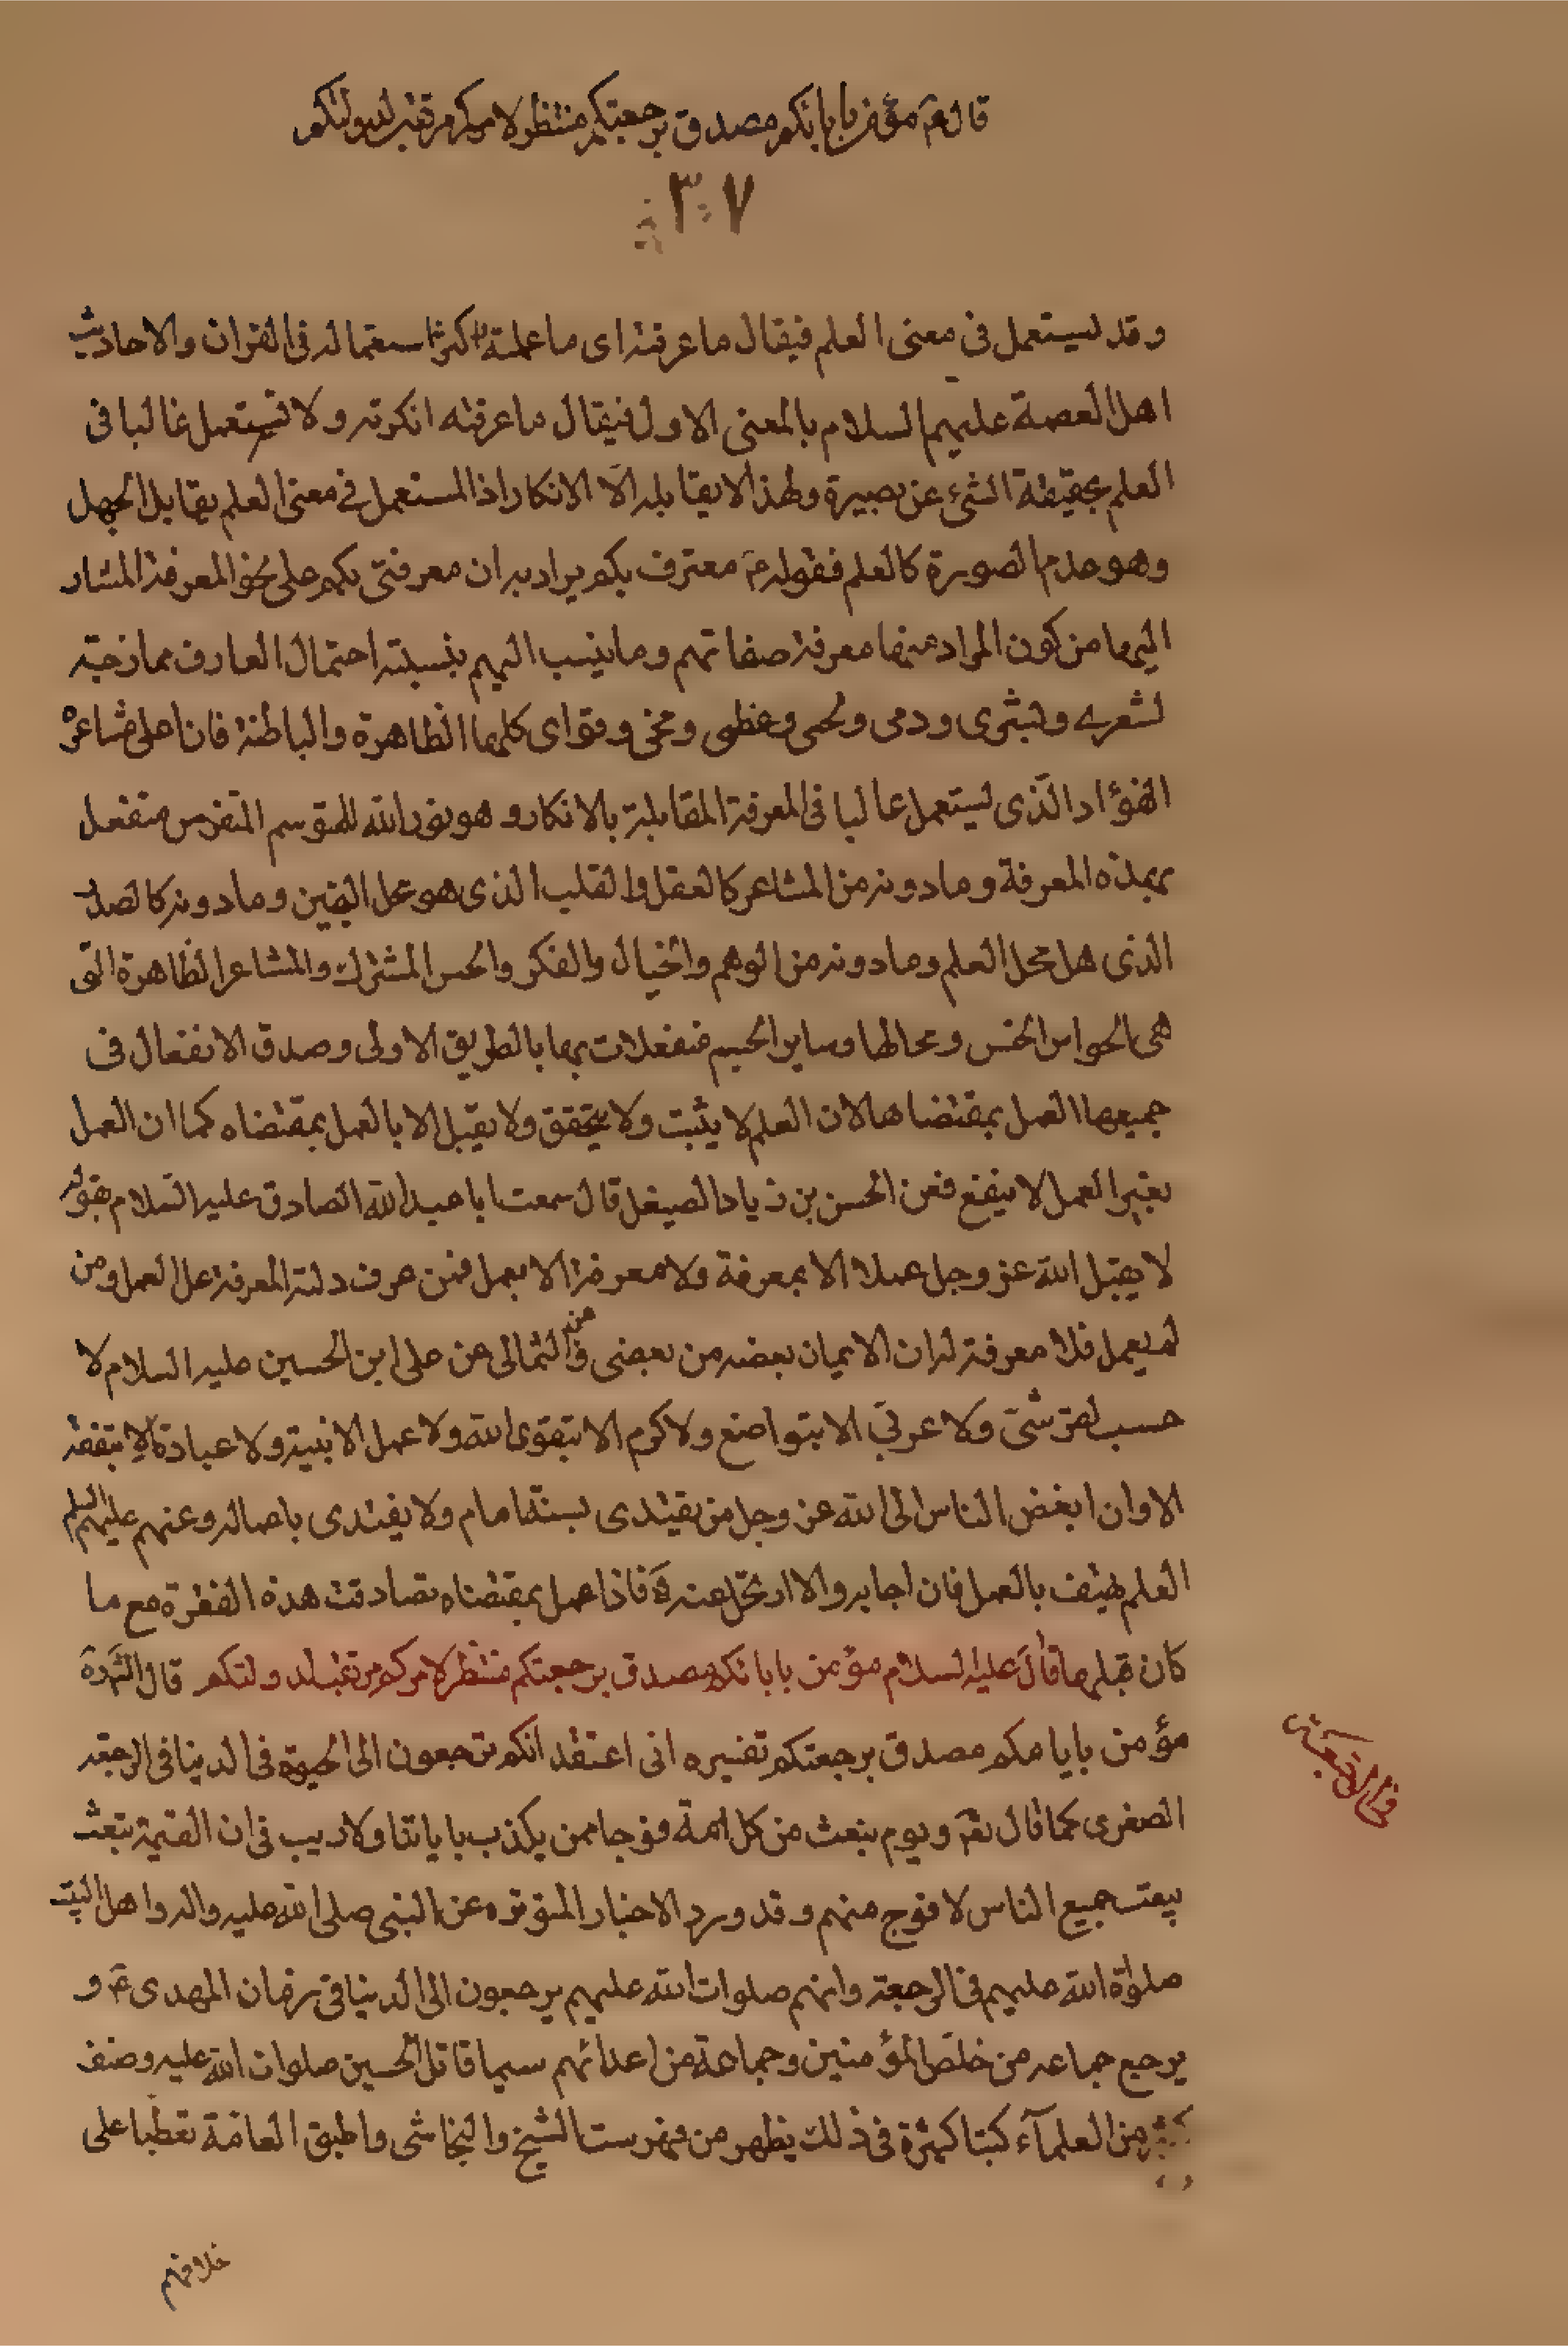 قال ع مؤمن بايابكم مصدق برجعتكم منتظر لامركم مرتقب لدولتكم
٣٠٧
وقد يستعمل فى معنى العلم فيقال ما عرفته اى ما علمته اكثر استعماله فى القران والاحاديث
اهل العصمة عليهم السلام بالمعنى الاول فيقال ما عرفته انكرته ولا تستعمل غالبا فى
العلم بحقيقة الشىء عن بصيرة ولهذا لا يقابله الا الانكار اذ المستعمل فى معنى العلم يقابل الجهل
وهو عدم الصورة كالعلم فقوله ع معترف بكم يراد به ان معرفتى بكم على نحو المعرفة المشار
اليها من كون المراد منها معرفة صفاتهم وما ينسب اليهم بنسبته احتمال العارف ممازجته
لشعرى وبشرى ودمى ولحمى وعظمى ومخى وقواى كلها الظاهرة والباطنة فان اعلى مشاعره
الفؤاد الذى يستعمل غالبا فى المعرفة المقابلة بالانكار وهو نور الله للمتوسم المتفرس منفعل
بهذه المعرفة وما دونه من المشاعر كالعقل والقلب الذى هو محل اليقين وما دونه كالصدر
الذى هل محل العلم وما دونه من الوهم والخيال والفكر والحس المشترك والمشاعر الظاهرة التى
هى الحواس الخمس ومحالها وساير الجسم منفعلات بها بالطريق الاولى وصدق الانفعال فى
جميعها العمل بمقتضاها لان العلم لا يثبت ولا يتحقق ولا يقبل الا بالعمل بمقتضاه كما ان العمل
بغير العمل لا ينفع فعن الحسن بن زياد الصيقل قال سمعت ابا عبد الله الصادق عليه السلام يقول
لا يقبل الله عز وجل عملا الا بمعرفة ولا معرفة الا بعمل فمن عرف دلته المعرفة على العمل ومن
لم يعمل فلا معرفة له ان الايمان بعضه من بعض وعن الثمالى عن على ابن الحسين عليه السلام لا
حسب لقرشى ولا عربى الا بتواضع ولا كرم الا بتقوى الله ولا عمل الا بنية ولا عبادة الا بتفقه
الا وان ابغض الناس الى الله عز وجل من يقتدى بسنة امام ولا يقتدى باعماله وعنهم عليهم السلم
العلم يهتف بالعمل فان اجابه والا ارتحل عنه فاذا عمل بمقتضاه تصادقت هذه الفقرة مع ما
كان قبلها قال عليه السلام مؤمن بايابكم مصدق برجعتكم منتظر لامركم مرتقب لدولتكم قال الش ره
مؤمن بايابكم مصدق برجعتكم تفسيره انى اعتقد انكم ترجعون الى الحيوة فى الدينا فى الرجعة
الصغرى كما قال تع ويوم نبعث من كل امة فوجا ممن يكذب باياتنا ولا ريب فى ان القيمة تبعث
يبعث جميع الناس لا فوج منهم وقد ورد الاخبار المتوتره عن النبى صلى الله عليه واله واهل البيت
صلواة الله عليهم فى الرجعة وانهم صلوات الله عليهم يرجعون الى الدينا فى زمان المهدى ع و
يرجع جماعه من خلص المؤمنين وجماعة من اعدائهم سيما قاتل الحسين صلوات الله عليه وصنف
كثير من العلمآء كتبا كثيرة فى ذلك يظهر من فهرست الشيخ والنجاشى واطبق العامة تعطبا على
خلافهم
فى الرجعة